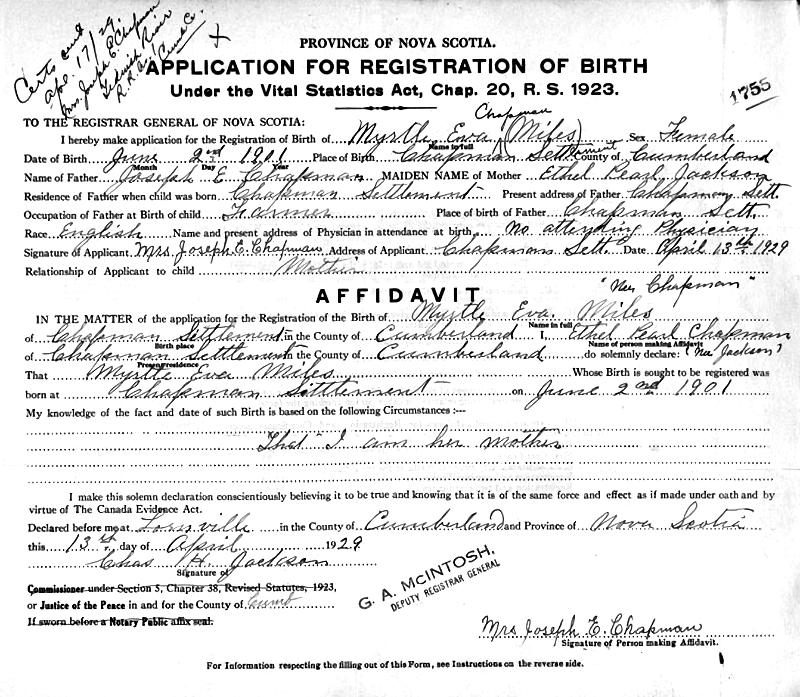 Certs sent
Apl. 17/29.
Mrs. Joseph E. Chapman
River
R.R. No 1 Cumb Co.
PROVINCE OF NOVA SCOTIA.
APPLICATION FOR REGISTRATION OF BIRTH
Under the Vital Statistics Act, Chap. 20, R. S. 1923.
1755
TO THE REGISTRAR GENERAL OF NOVA SCOTIA:
Chapman
I hereby make application for the Registration of Birth of Myrtle Eva (Miles) Sex Female
Name in full
Date of Birth June 2nd 1901 Place of Birth Chapman Settlement County of Cumberland
Month Day Year
Name of Father Joseph E. Chapman MAIDEN NAME of Mother Ethel Pearl Jackson
Residence of Father when child was born Chapman Settlement Present address of Father Chapman Sett.
Occupation of Father at Birth of child Farmer Place of birth of Father Chapman Sett.
Race English Name and present address of Physician in attendance at birth No attending Physician
Signature of Applicant Mrs. Joseph E. Chapman Address of Applicant Chapman Sett. Date April 13th 1929
Relationship of Applicant to child Mother
AFFIDAVIT
"Nee Chapman"
IN THE MATTER of the application for the Registration of Birth of Myrtle Eva. Miles
Name in full
of Chapman Settlement in the County of Cumberland I, Ethel Pearl Chapman
Birth place Name of person making Affidavit
of Chapman Settlement in the County of Cumberland do solemnly declare: (Nee Jackson)
Present residence
That Myrtle Eva Miles Whose Birth is sought to be registered was
born at Chapman Settlement on June 2nd 1901
My knowledge of the fact and date of such Birth is based on the following Circumstances :—
"That" I am her mother
I make this solemn declaration conscientiously believing it to be true and knowing that it is of the same force and effect as if made under oath and by
virtue of The Canada Evidence Act.
Declared before me at in the County of Cumberland and Province of Nova Scotia
this 13th day of April 1929
Chas H. Jackson
Signature of
Commissioner under Section 5, Chapter 38, Revised Statutes, 1923,
or Justice of the Peace in and for the County of Cumb
If sworn before a Notary Public affix seal.
G. A. McINTOSH,
DEPUTY REGISTRAR GENERAL
Mrs. Joseph E. Chapman
Signature of Person making Affidavit.
For Information respecting the filling out of this Form, see Instructions on the reverse side.